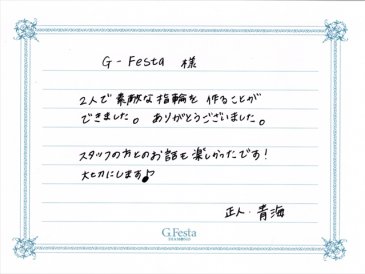 G-Festa 様
2人で素敵な指輪を作ることが
できました。ありがとうございました。
スタッフの方とのお話も楽しかったです!
大切にします♪
正人・青海
G.Festa